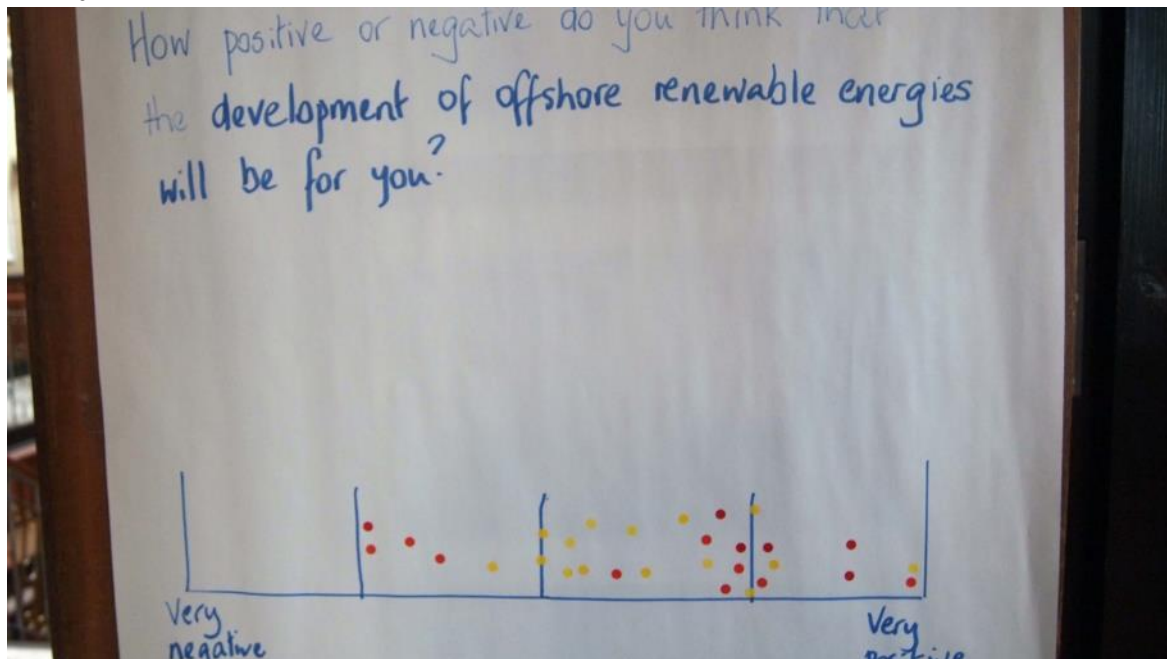 How positive or negative do you think that
the development of offshore renewable energies
will be for you?
Very
negative
Very
positive